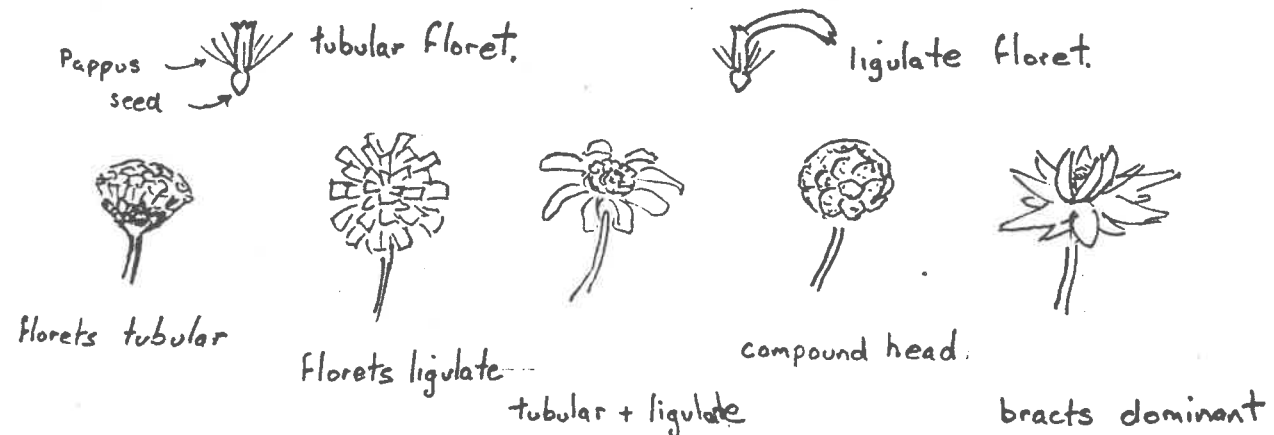 Pappus
seed
tubular floret.
ligulate floret.
florets tubular
florets ligulate
tubular + ligulate
compound head.
bracts dominant